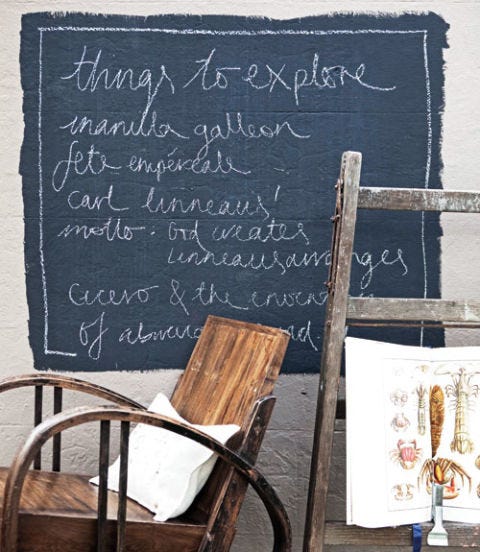 things to explore
manilla galleon
fete empéreale
carl linneaus'
motto: God creates
linneaus arranges
Cicero & the
of